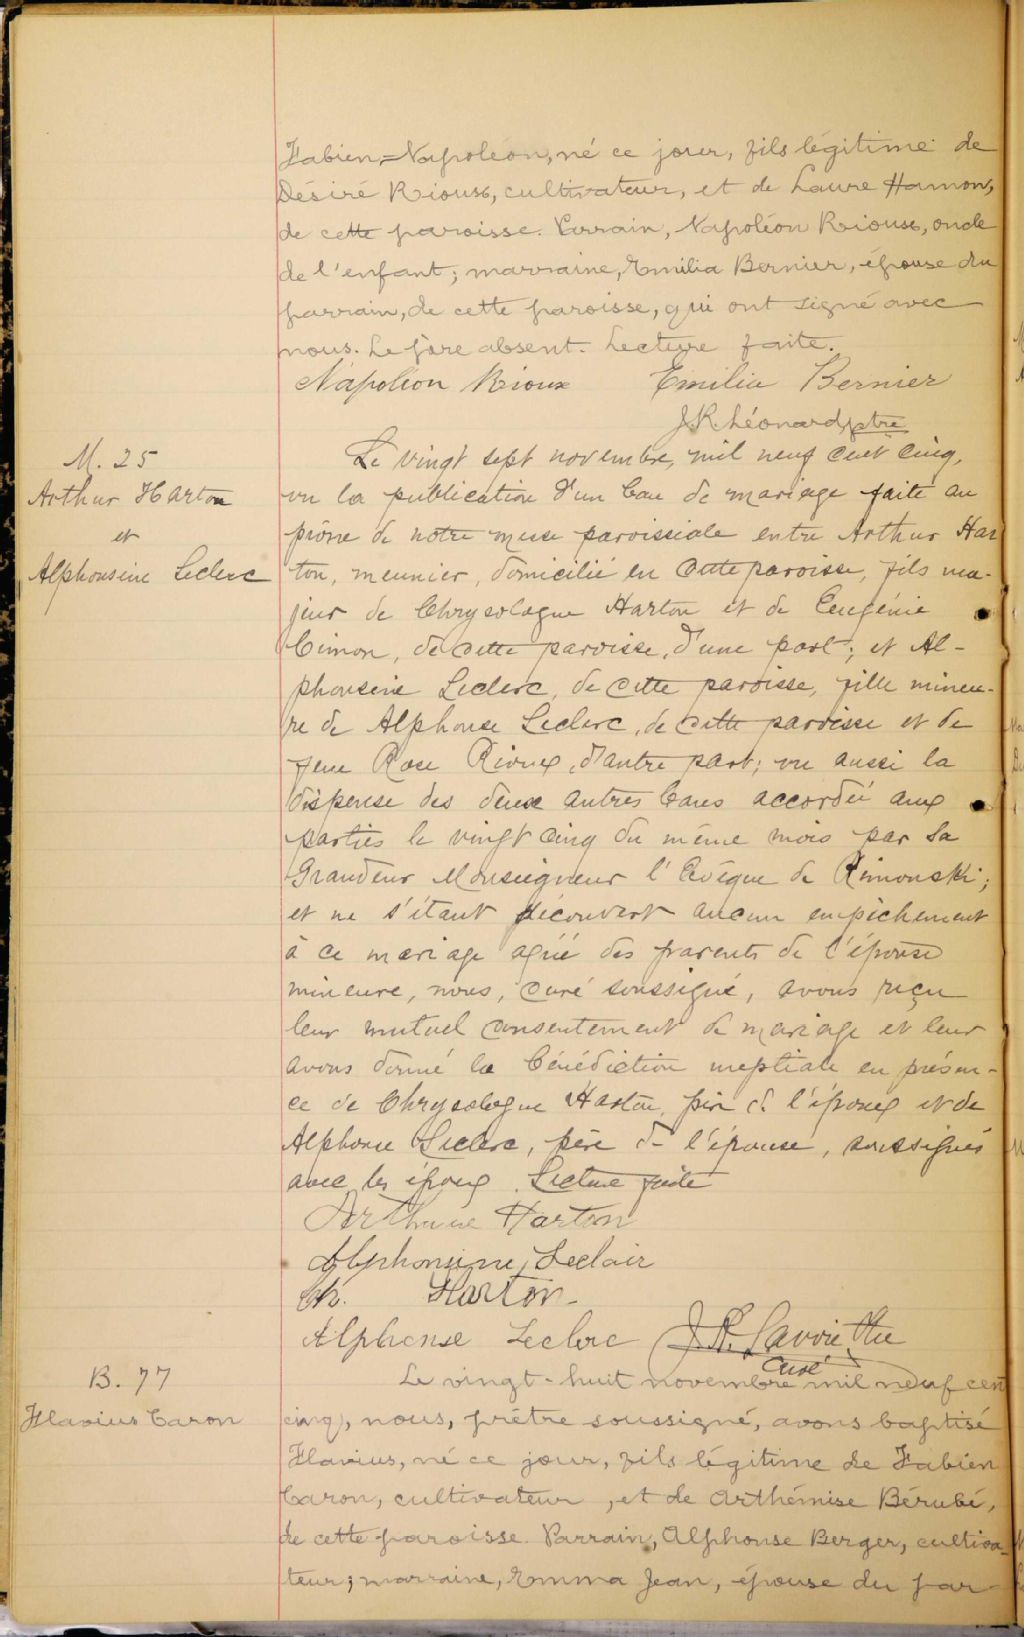 Fabien=Napoléon, né ce jour, fils légitime de
Désiré Rioux, cultivateur, et de Laure Hamon,
de cette paroisse. Parrain, Napoléon Rioux, oncle
de l'enfant; marraine, Emilia Bernier, épouse du
parrain, de cette paroisse, qui ont signé avec
nous. Le père absent. Lecture faite.
Napoléon Rioux Emilia Bernier
J.R. Léonard, ptre
M. 25
Arthur Harton
et
Alphonsine Leclerc
Le vingt sept novembre, mil neuf cent cinq,
vu la publication d'un ban de mariage faite au
prône de notre messe paroissiale entre Arthur Har
ton, meunier, domicilié en cette paroisse, fils ma-
jeur de Chrysologue Harton et de Eugénie
Cimon, de cette paroisse, d'une part; et Al-
phonsine Leclerc, de cette paroisse, fille mineu-
re de Alphonse Leclerc, de cette paroisse et de
feue Rose Rioux, d'autre part; vu aussi la
dispense des deux autres bans accordée aux
parties le vingt cinq du même mois par Sa
Grandeur Monseigneur l'Evêque de Rimouski;
et ne s'étant découvert aucun empêchement
à ce mariage agréé des parents de l'épouse
mineure, nous, curé soussigné, avons reçu
leur mutuel consentement de mariage et leur
avons donné la bénédiction nuptiale en présen-
ce de Chrysologue Harton, père de l'époux et de
Alphonse Leclerc, père de l'épouse, soussignés
avec les époux. Lecture faite
Arthur Harton
Alphonsine Leclair
Ch. Harton
Alphonse Leclerc J. R. Lavoie Ptre
Curé
B. 77
Flavius Caron
Le vingt-huit novembre mil neuf cent
cinq, nous, prêtre soussigné, avons baptisé
Flavius, né ce jour, fils légitime de Fabien
Caron, cultivateur, et de Arthémise Bérubé,
de cette paroisse. Parrain, Alphonse Berger, cultiva-
teur; marraine, Emma Jean, épouse du par-